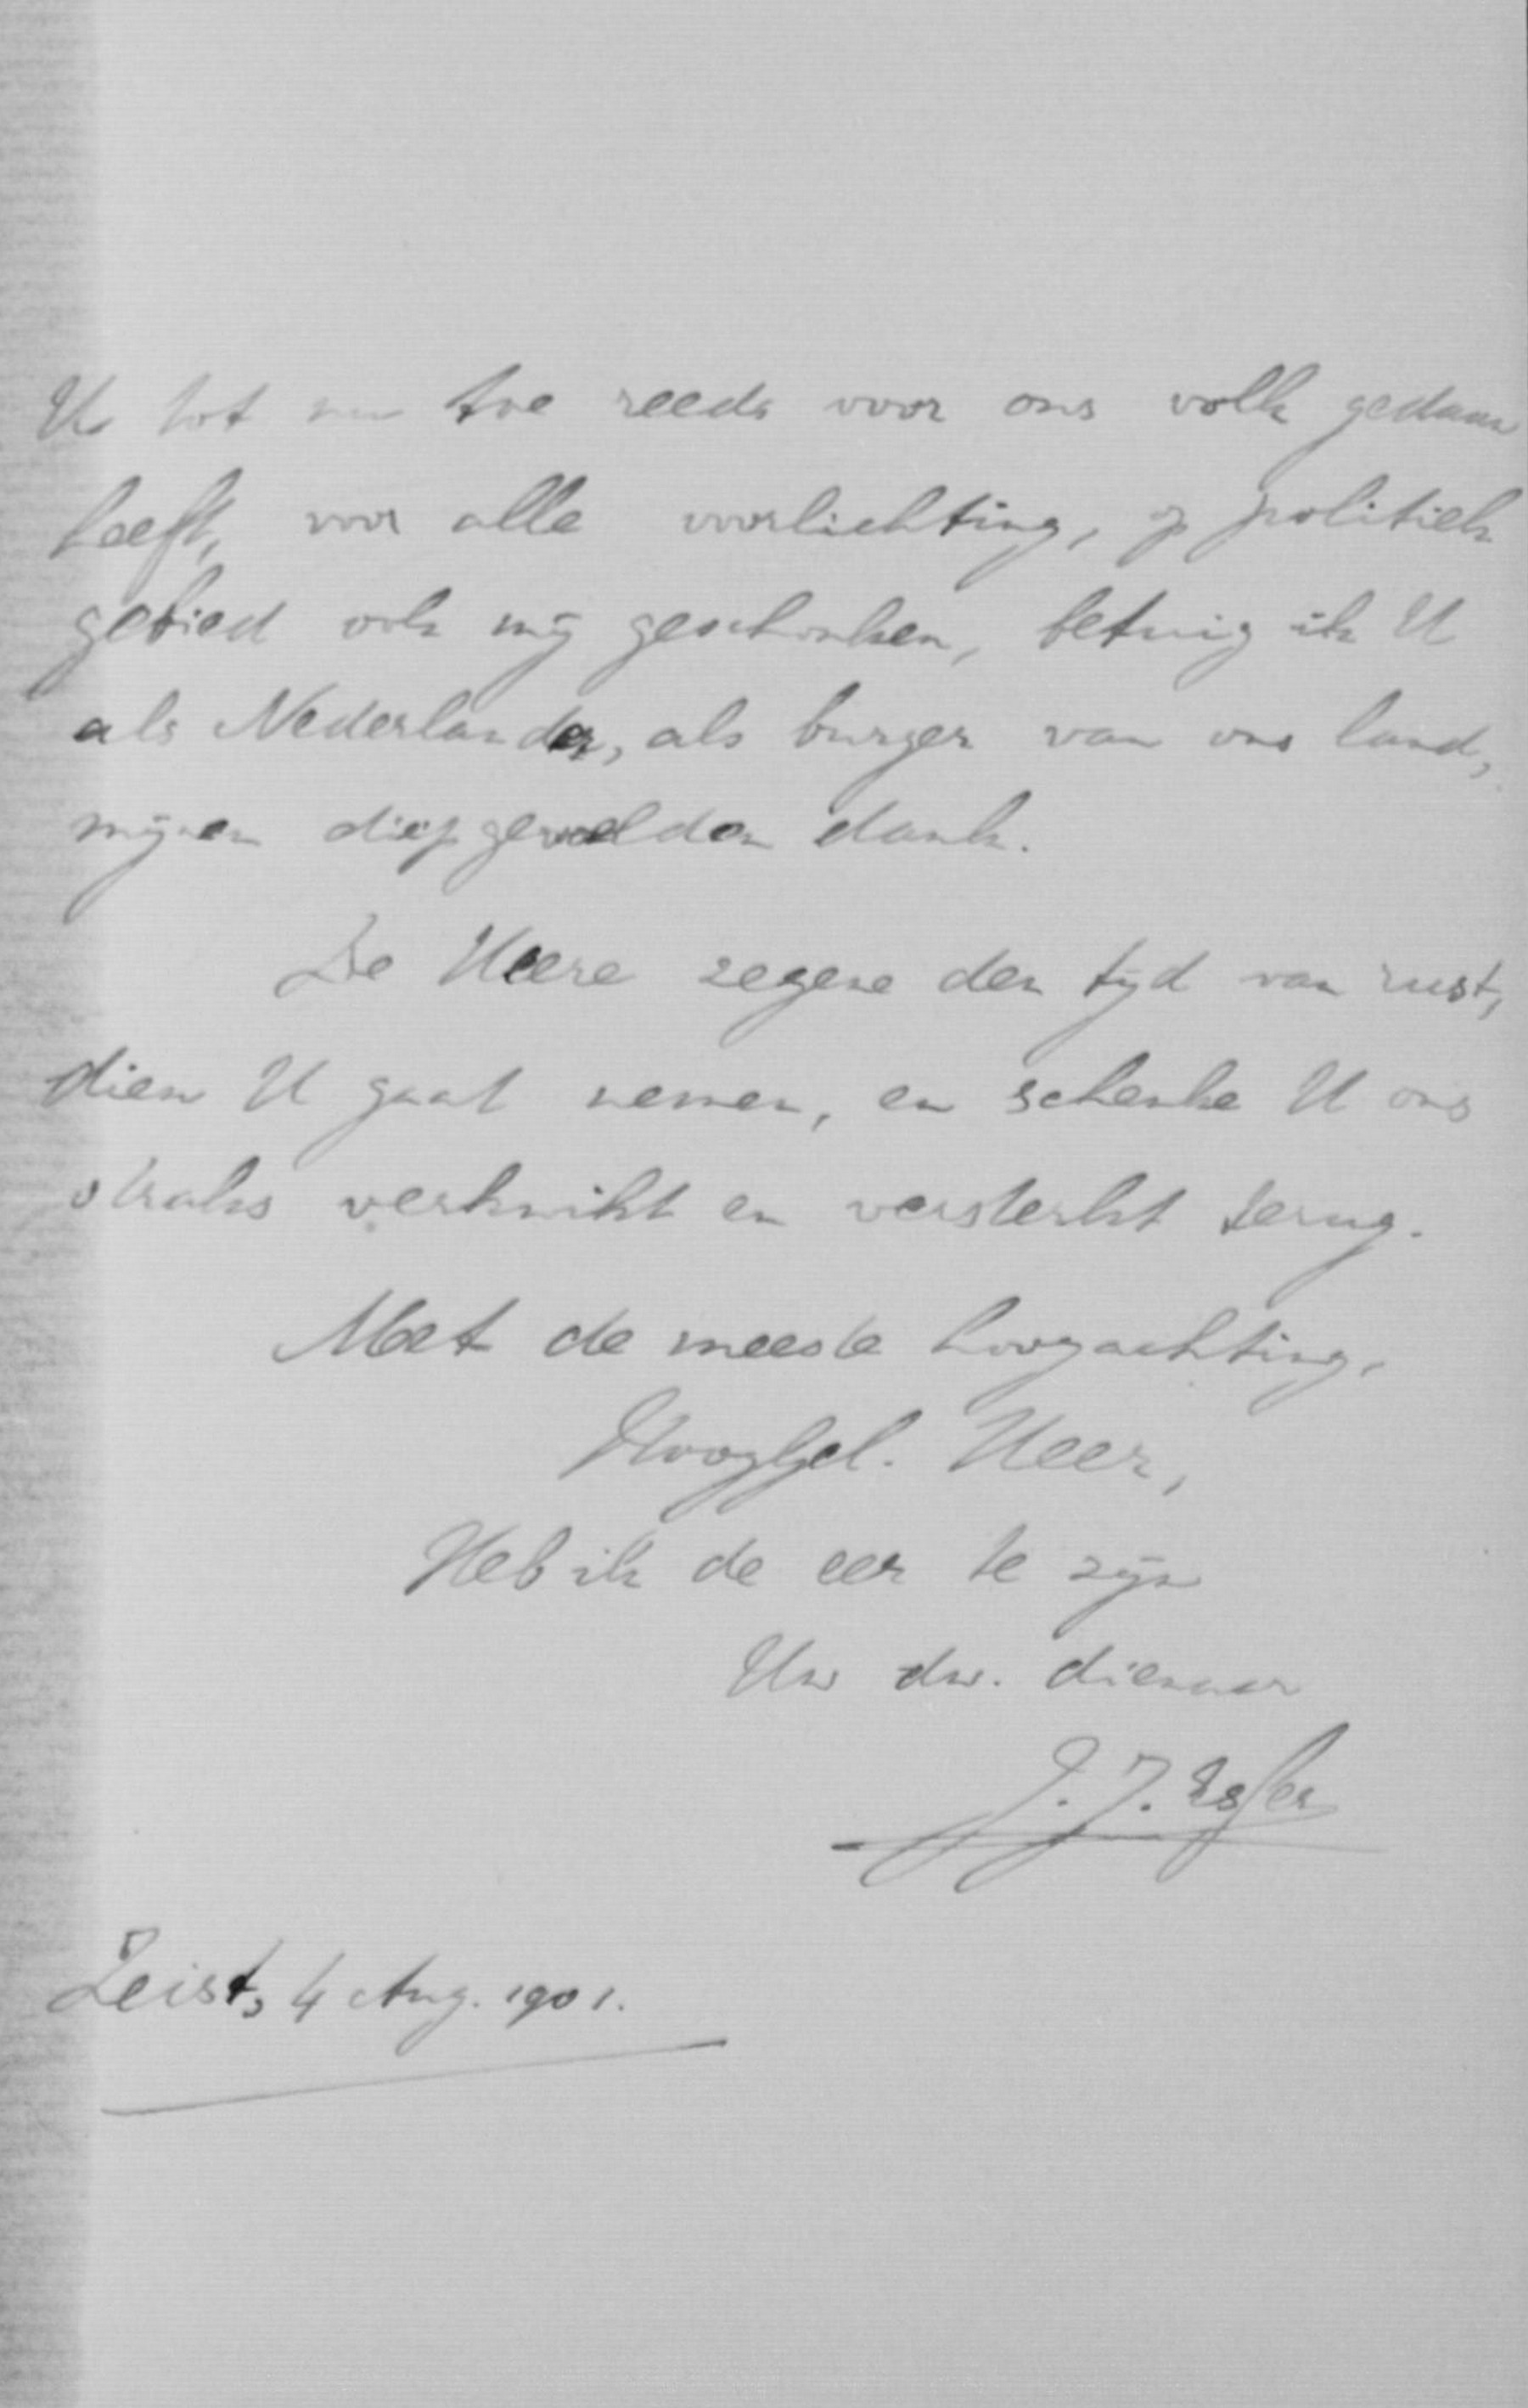 U tot nu toe reeds voor ons volk gedaan
heeft, voor alle voorlichting, op politiek
gebied ook mij geschonken, betuig ik U
als Nederlander, als burger van ons land,
mijnen diepgevoelden dank.
De Heere zegene den tijd van rust,
dien U gaat nemen, en schenke U ons
straks verkwikt en versterkt terug.
Met de meeste hoogachting,
HoogGel. Heer,
Heb ik de eer te zijn
Uw dw. dienaar
J. J. Esser
Zeist, 4 Aug. 1901.